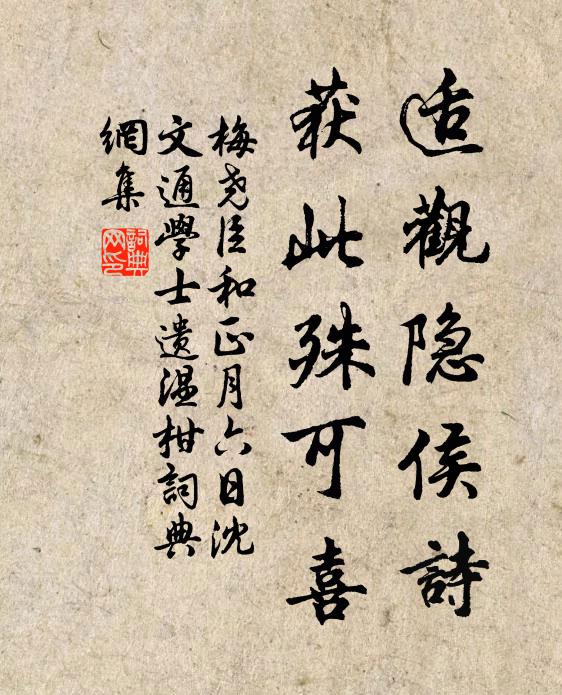 适觀隐侯詩
获此殊可喜
梅尧臣和正月六日沈
文通學士遗温柑詞典
網集
詞典网印